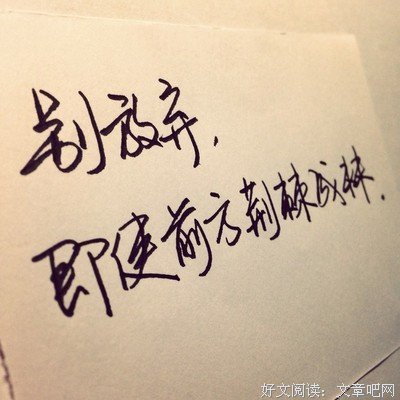 别放弃，
即使前方荆棘成林．
好文阅读：文章吧网